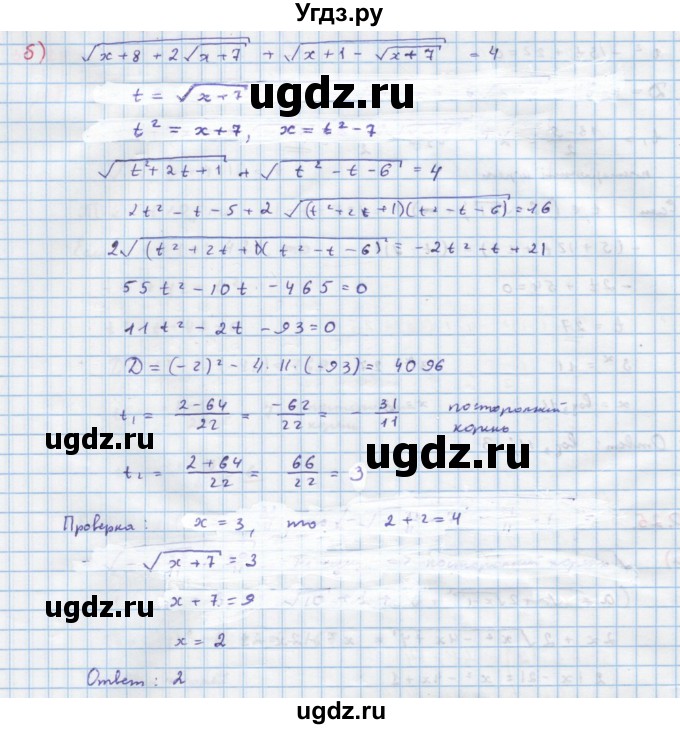 Угдз.ру
б) √(x+8+2√(x+7)) + √(x+1-√(x+7)) = 4
t = √(x+7)
ugdz.ru
t² = x+7, x = t²-7
√(t²+2t+1) + √(t²-t-6) = 4
ugdz.ru
2t²-t-5+2√((t²+2t+1)(t²-t-6)) = 16
2√((t²+2t+1)(t²-t-6)) = -2t²-t+21
ugdz.ru
55t²-10t-465=0
11t²-2t-93=0
D=(-2)²-4·11·(-93)=4096
t₁ = (2-64)/22 = -62/22 = -31/11 посторонний корень
ugdz.ru
t₂ = (2+64)/22 = 66/22 = 3
ugdz.ru
Проверка: x=3, то 2+2=4
√(x+7) = 3
x+7=9
ugdz.ru
x=2
Ответ: 2
ugdz.ru